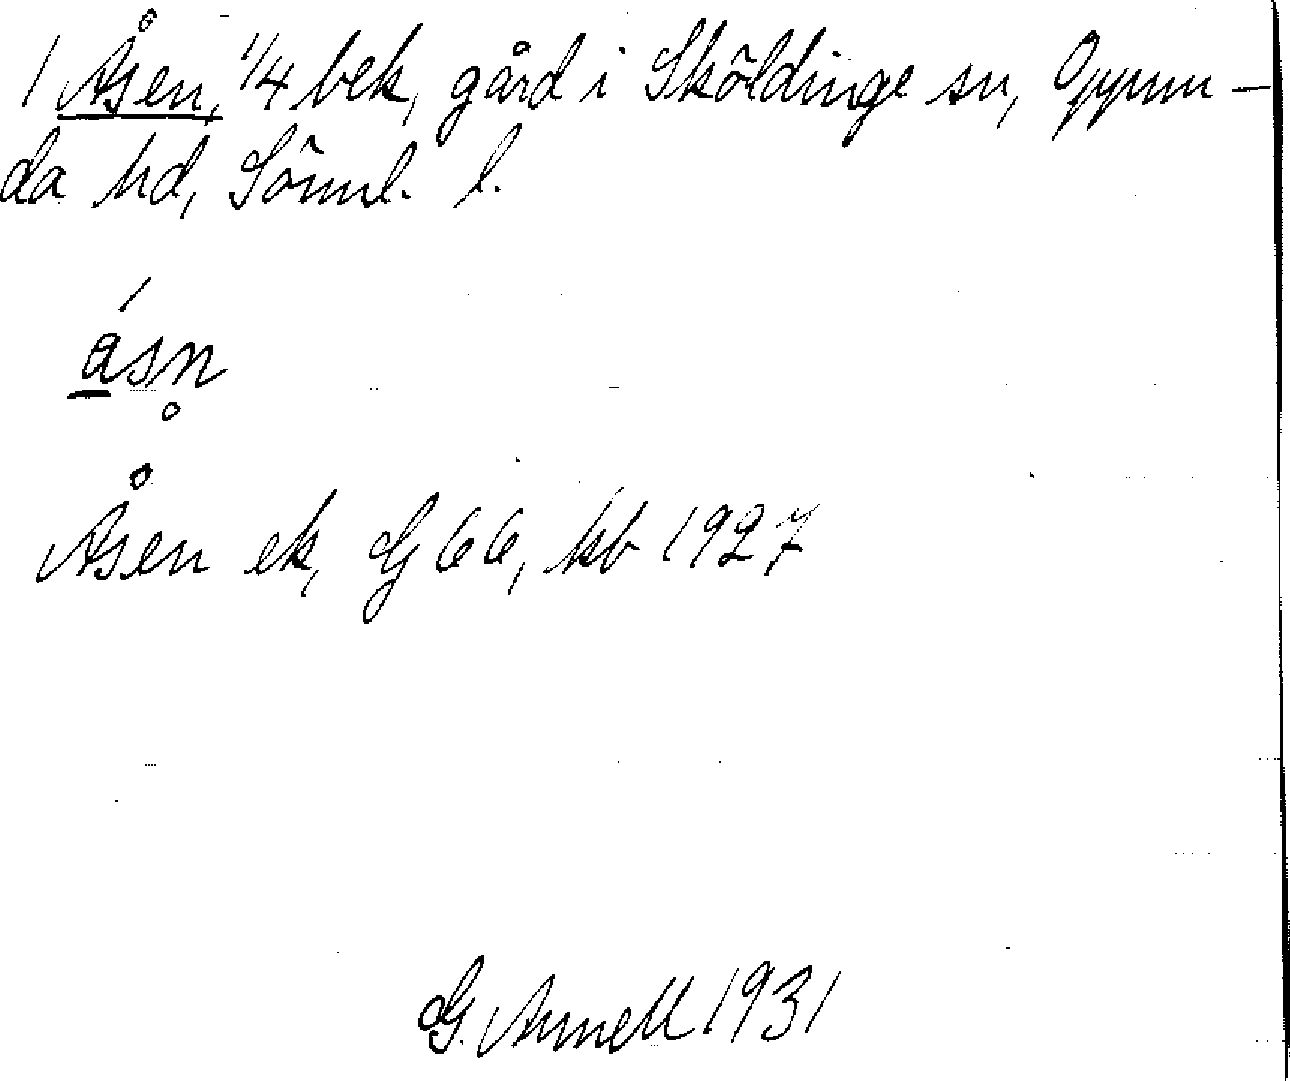 1 Åsen, 1/4 bek, gård i Sköldinge sn, Oppun-
da hd, Sörml. l.
ásn̥
Åsen ek, G 66, kb 1927
G. Annell 1931